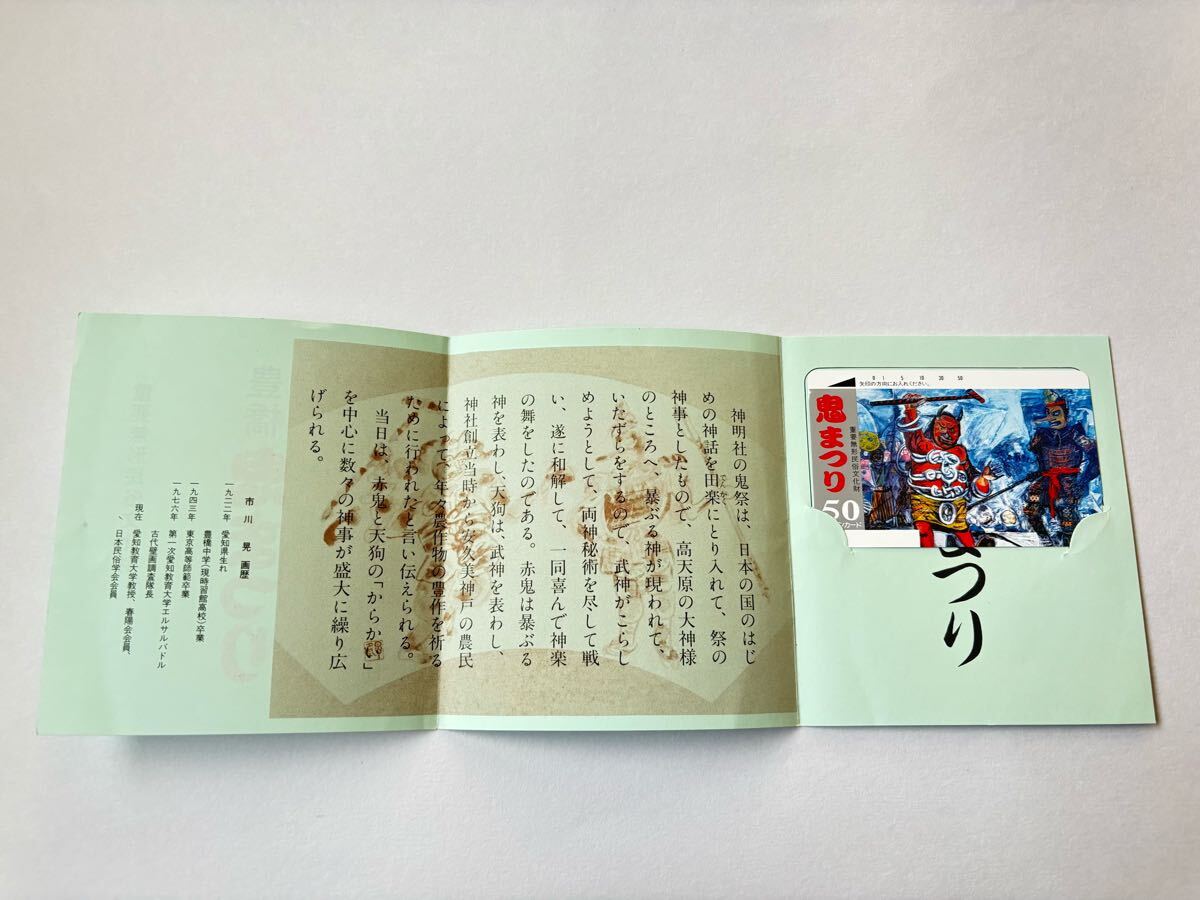 0 1 5 10 30 50
矢印の方向にお入れください。
鬼まつり
重要無形民俗文化財
50
カード
つり
神明社の鬼祭は、日本の国のはじ
めの神話を田楽にとり入れて、祭の
でんがく
神事としたもので、高天原の大神様
のところへ、暴ぶる神が現われて、
いたずらをするので、武神がこらし
めようとして、両神秘術を尽して戦
い、遂に和解して、一同喜んで神楽
の舞をしたのである。赤鬼は暴ぶる
神を表わし、天狗は、武神を表わし、
神社創立当時から安久美神戸の農民
によって、年々農作物の豊作を祈る
ために行われたと言い伝えられる。
当日は、赤鬼と天狗の「からかい」
を中心に数々の神事が盛大に繰り広
げられる。
市川 晃 画歴
一九二二年 愛知県生れ
豊橋中学(現時習館高校)卒業
一九四三年 東京高等師範卒業
一九七六年 第一次愛知教育大学エルサルバドル
古代壁画調査隊長
現在 愛知教育大学教授、春陽会会員、
日本民俗学会会員